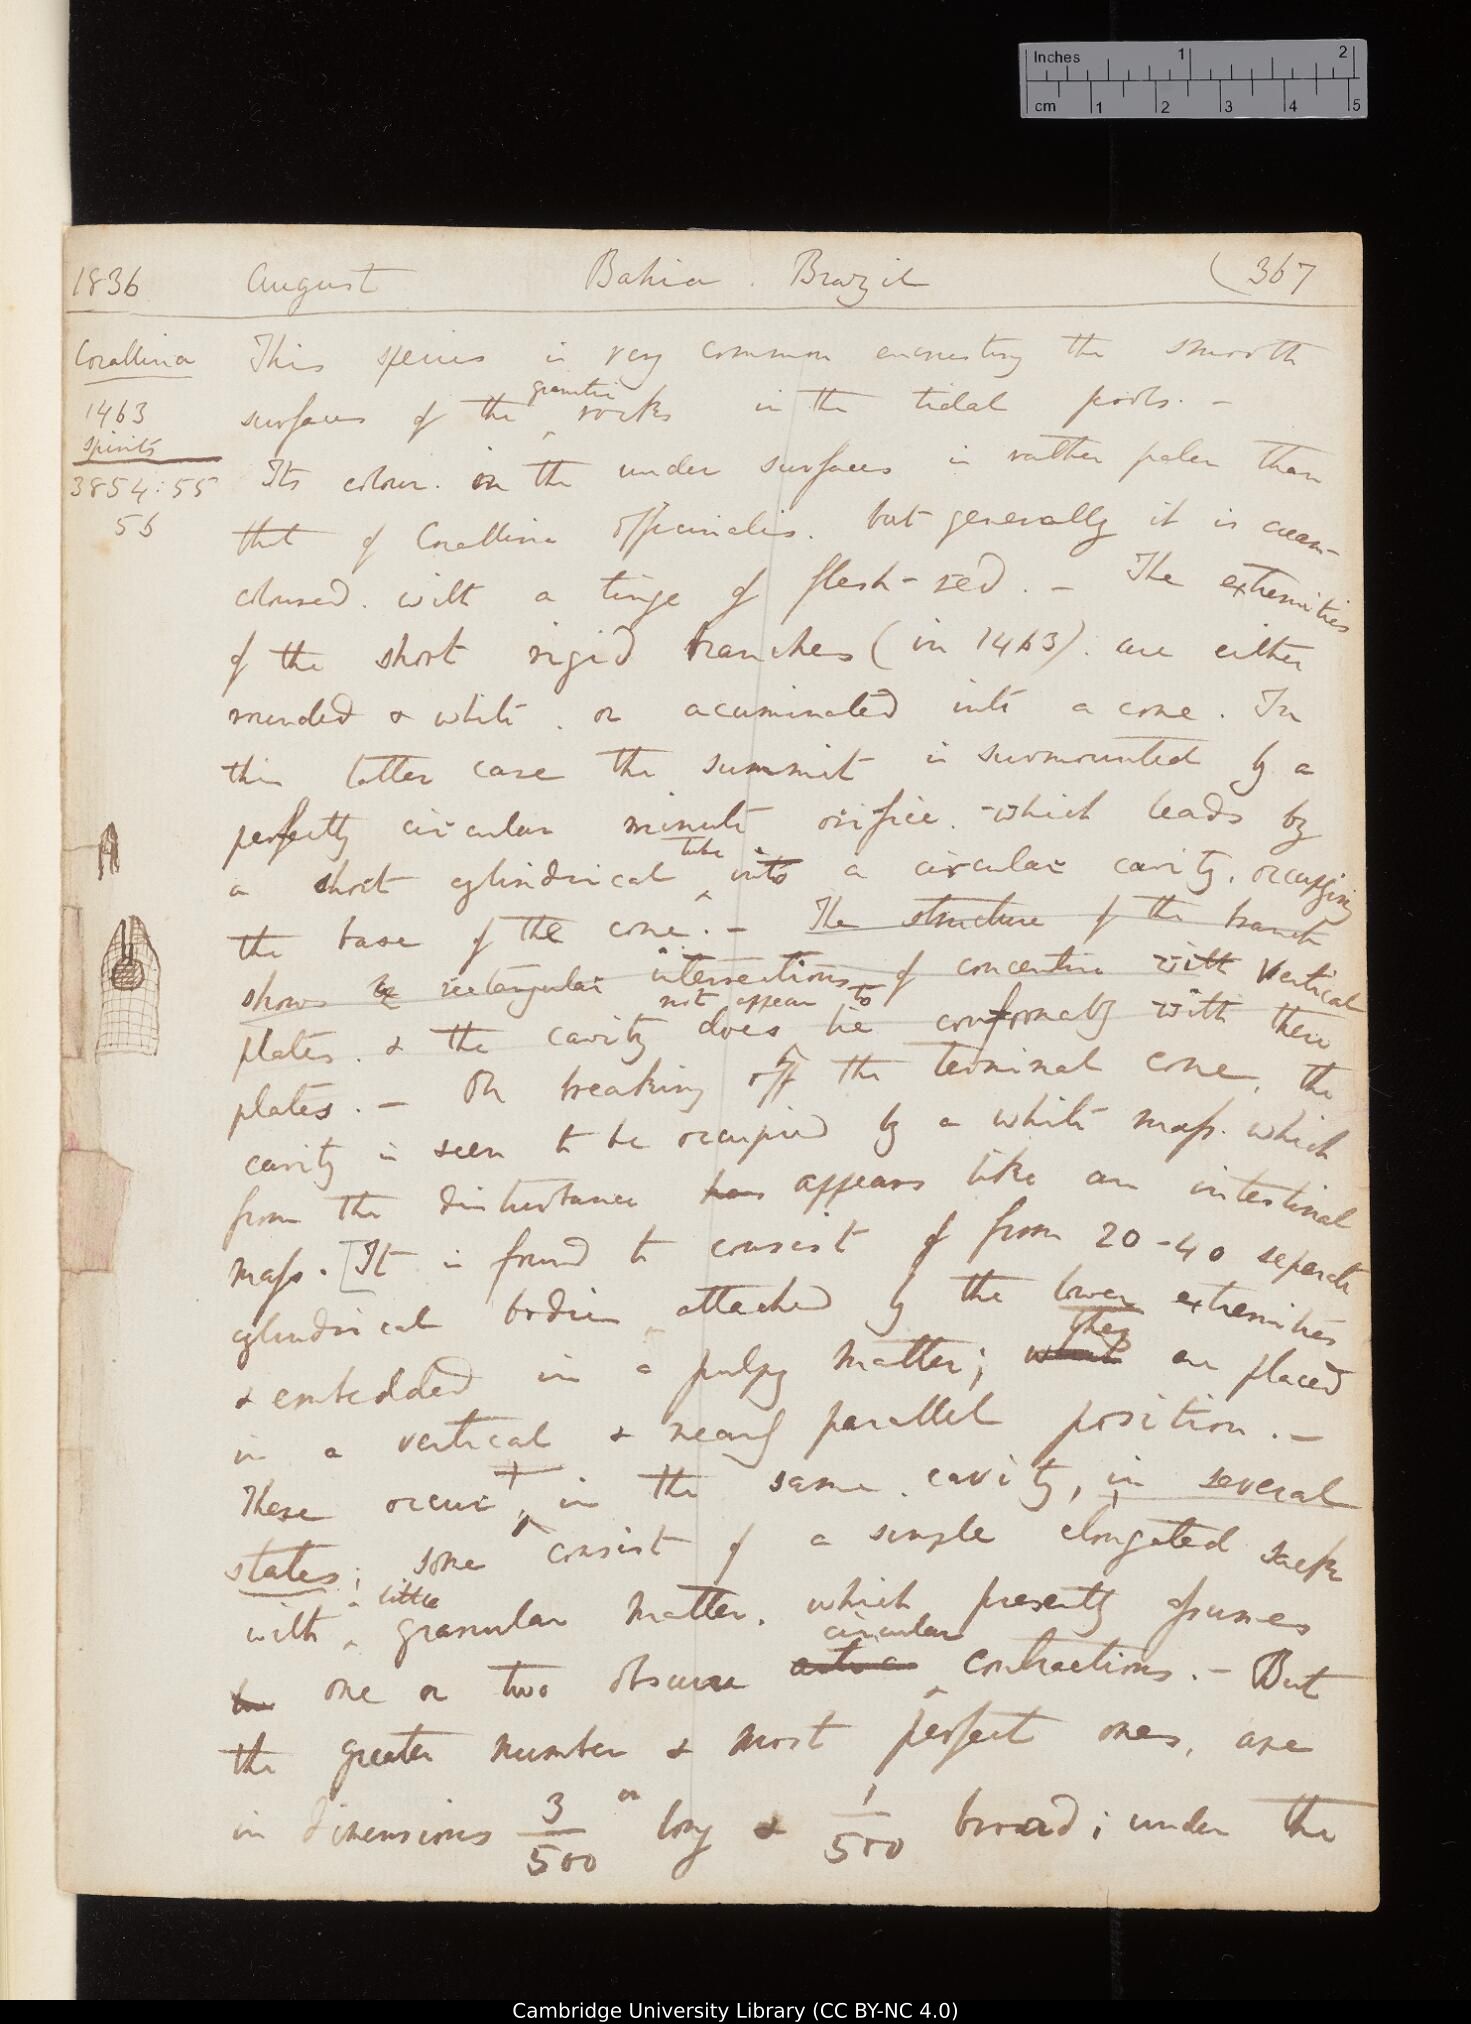 Inches 1 2
cm 1 2 3 4 5
1836 August Bahia. Brazil (367
Corallina
1463
spirits
3854:55
56
This species is very common encrusting the smooth
granitic
surfaces of the rocks in the tidal pools. —
Its colour. on the under surfaces is rather paler than
that of Corallina officinalis. but generally it is cream-
coloured. with a tinge of flesh-red. — The extremities
of the short rigid branches (in 1463). are either
rounded & white. or acuminated into a cone. In
this latter case the summit is surmounted by a
perfectly circular minute orifice. which leads by
tube
a short cylindrical into a circular cavity. occupying
the base of the cone. — The structure of the branch
shows rectangular intersections of concentric with vertical
not appear to
plates. & the cavity does lie conformably with these
plates. — On breaking off the terminal cone, the
cavity is seen to be occupied by a white mass. which
from the disturbance has appears like an intestinal
mass. [It is found to consist of from 20-40 separate
cylindrical bodies attached by the lower extremities
they
& embedded in a pulpy matter; which are placed
in a vertical & nearly parallel position. —
+
These occur in the same cavity, in several
states; some consist of a simple elongated sack
a little
with granular matter. which presently assumes
circular
one or two obscure contractions. — But
the greater number & most perfect ones, are
in dimensions 3/500 long & 1/500 broad; under the
Cambridge University Library (CC BY-NC 4.0)